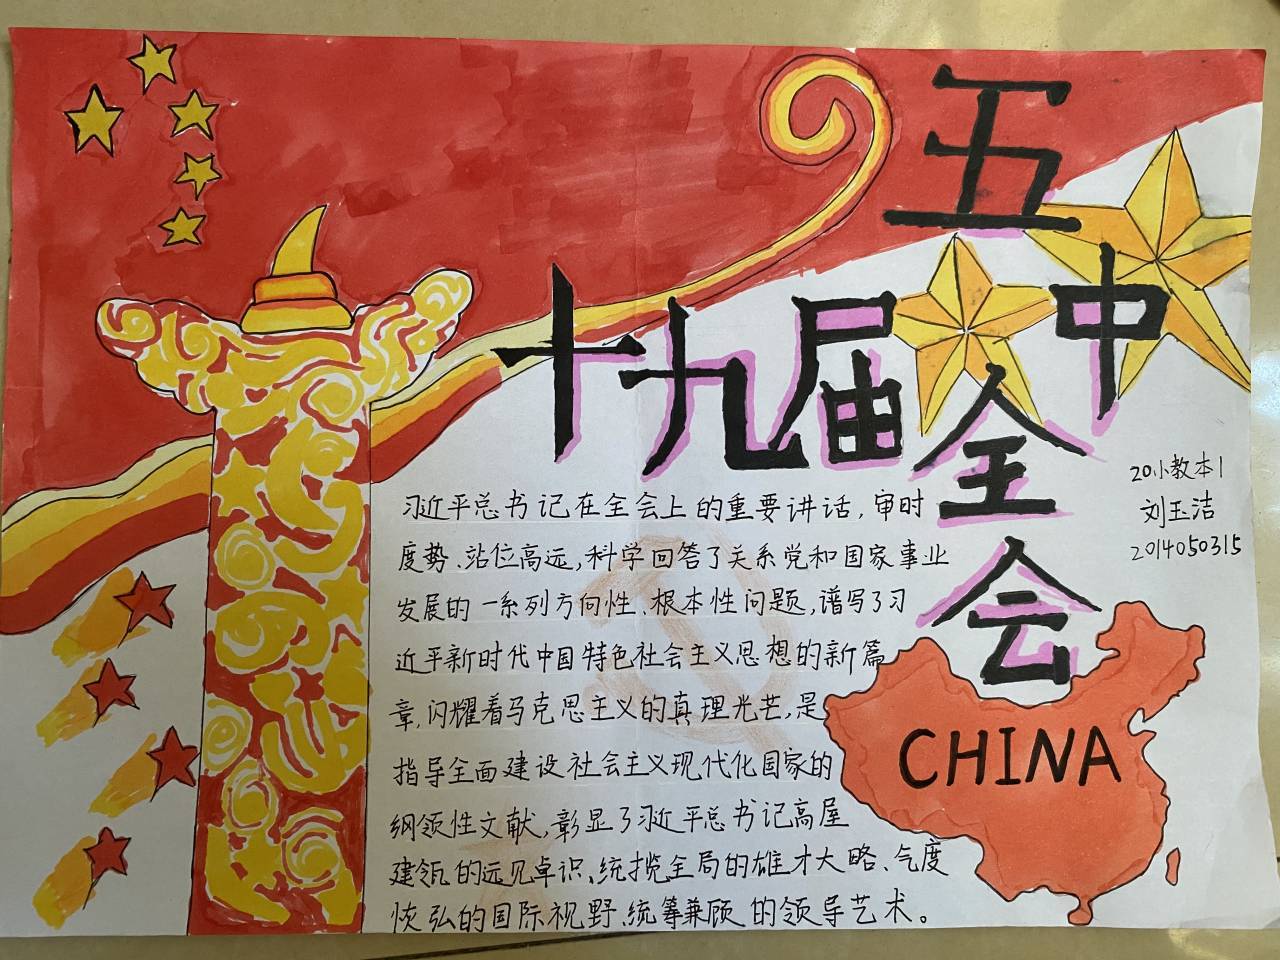 十九届五中全会
20小教本1
刘玉洁
2014050315
习近平总书记在全会上的重要讲话,审时
度势、站位高远,科学回答了关系党和国家事业
发展的一系列方向性、根本性问题,谱写了习
近平新时代中国特色社会主义思想的新篇
章,闪耀着马克思主义的真理光芒,是
指导全面建设社会主义现代化国家的
纲领性文献,彰显了习近平总书记高屋
建瓴的远见卓识、统揽全局的雄才大略、气度
恢弘的国际视野、统筹兼顾的领导艺术。
CHINA